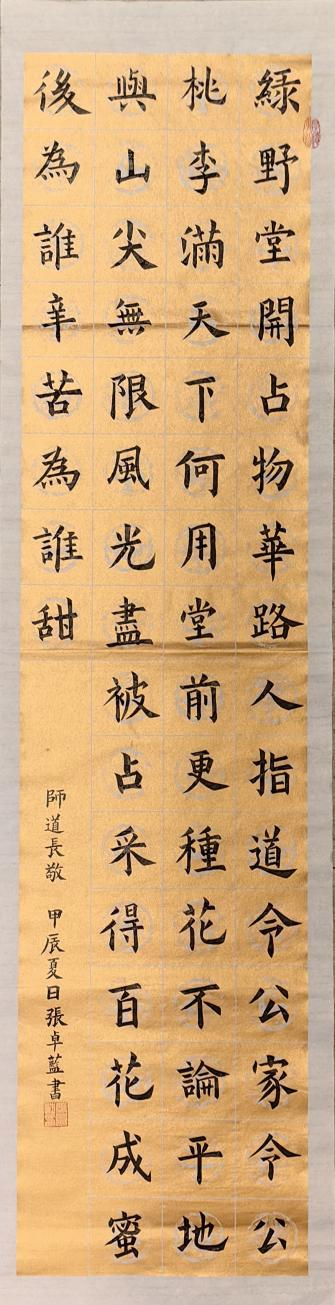 綠野堂開占物華路人指道令公家令公
桃李滿天下何用堂前更種花不論平地
與山尖無限風光盡被占采得百花成蜜
後為誰辛苦為誰甜
師道長敬 甲辰夏日張卓藍書